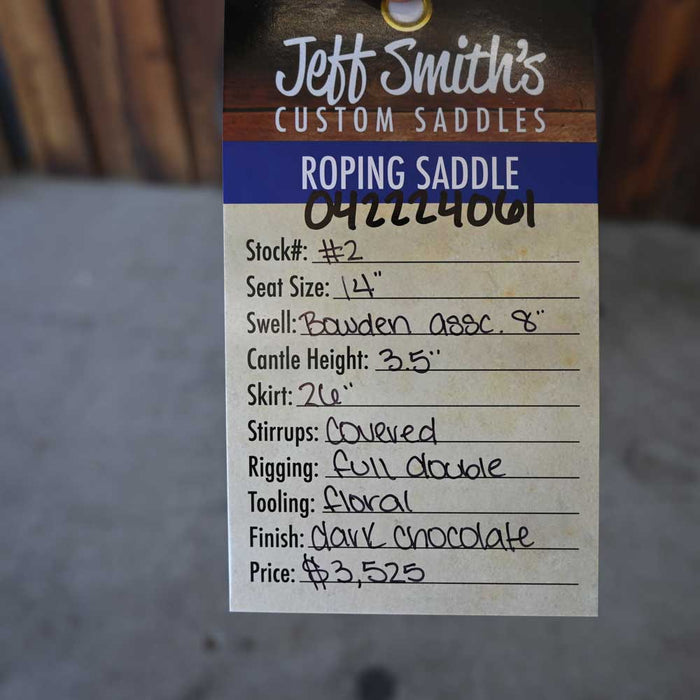 Jeff Smith's
CUSTOM SADDLES
ROPING SADDLE
042224061
Stock#: #2
Seat Size: 14"
Swell: Bowden assc. 8"
Cantle Height: 3.5"
Skirt: 26"
Stirrups: Covered
Rigging: full double
Tooling: floral
Finish: dark chocolate
Price: $3,525